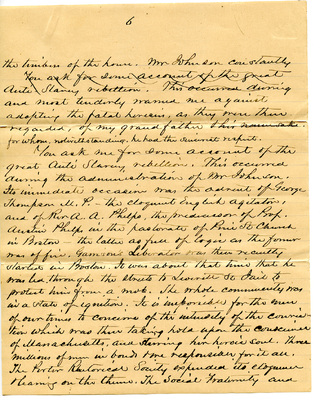 6
the timbers of the house. Mr. Johnson constantly
You ask for some account of the great
Anti Slavery rebellion. This occurred during
and most tenderly warned me against
adopting the fatal heresies, as they were then
regarded, of my grandfather his namesake
for whom, notwithstanding, he had the sincerest respect.
You ask me for some account of the
great Anti Slavery rebellion. This occurred
during the administration of Mr Johnson.
Its immediate occasion was the advent of George
Thompson M. P. - the eloquent English agitator,
and of Rev A. A. Phelps, the predecessor of Prof.
Austin Phelps in the pastorate of Pine St Church
in Boston - the latter as full of logic as the former
was of fire. Garrison's Liberator was then recently
started in Boston. It was about that time that he
was led through the streets to Leverett St Jail to
protect him from a mob. The whole community was
in a state of ignition. It is impossible for the men
of our times to conceive of the intensity of the convic-
tion which was then taking hold upon the conscience
of Massachusetts, and stirring her heroic soul. Three
millions of men in bonds & we responsible for it all.
The Porter Rhetorical Society expended its eloquence
& learning on the theme. The Social Fraternity and